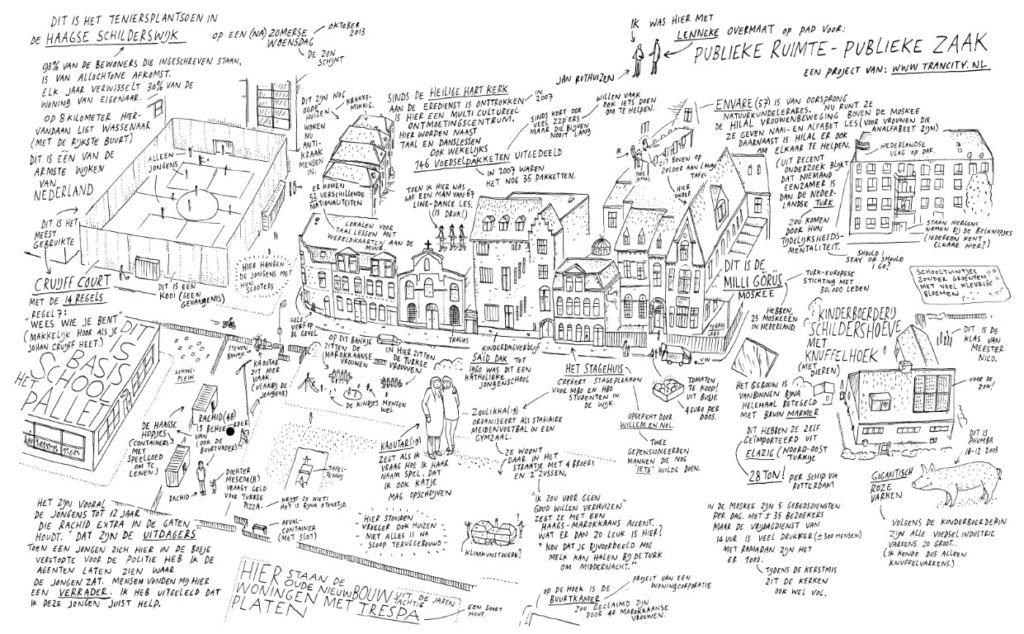 DIT IS HET TENIERSPLANTSOEN IN
DE HAAGSE SCHILDERSWIJK
OP EEN (NA) ZOMERSE
WOENSDAG
OKTOBER
2013
DE ZON
SCHIJNT
93% VAN DE BEWONERS DIE INGESCHREVEN STAAN,
IS VAN ALLOCHTONE AFKOMST.
ELK JAAR VERWISSELT 30% VAN DE
WONING VAN EIGENAAR.
OP 8 KILOMETER HIER-
VANDAAN LIGT WASSENAAR
(MET DE RIJKSTE BUURT).
DIT IS ÉÉN VAN DE
ARMSTE WIJKEN
VAN
NEDERLAND
ALLEEN
JONGENS
DIT IS HET
MEEST
GEBRUIKTE
CRUIJFF COURT
MET DE 14 REGELS
REGEL 7:
"WEES WIE JE BENT"
(MAKKELIJK HOOR ALS JE
JOHAN CRUIJFF HEET)
DIT IS EEN
KOOI (GEEN
GEVANGENIS)
HIER HANGEN
DE JONGENS MET
HUN SCOOTERS
DIT ZIJN NOG
OUDE
HUIZEN
WONEN
NU
ANTI-
KRAAK
MENSEN
IN.
ER KOMEN
52 VERSCHILLENDE
NATIONALITEITEN
LOKALEN VOOR
TAALLESSEN MET
WERELDKAARTEN AAN DE
MUUR
SINDS DE HEILIGE HART KERK
AAN DE EREDIENST IS ONTTROKKEN
IS HIER EEN MULTICULTUREEL
ONTMOETINGSCENTRUM.
HIER WORDEN NAAST
TAAL EN DANSLESSEN
OOK WEKELIJKS
146 VOEDSELPAKKETEN UITGEDEELD
IN
2007
IN 2007 WAREN
HET NOG 35 PAKKETTEN.
TOEN IK HIER WAS
GAF EEN MAN VAN 67
LINE-DANCE LES,
(IS DRUK!)
SINDS KORT OOK
VEEL ZZP'ERS
MAAR DIE BLIJVEN
NOOIT LANG
WILLEN VAAK
OOK IETS DOEN
OM TE HELPEN.
IK WAS HIER MET
LENNEKE OVERMAAT OP PAD VOOR:
PUBLIEKE RUIMTE - PUBLIEKE ZAAK
EEN PROJECT VAN: WWW.TRANCITY.NL
JAN ROTHUIZEN
ENVARE (57) IS VAN OORSPRONG
NATUURKUNDELERARES. NU RUNT ZE
DE HILAL VROUWENBEWEGING BOVEN DE MOSKEE
ZE GEVEN NAAI- EN ALFABET LES (VOOR VROUWEN DIE
ANALFABEET ZIJN)
DAARNAAST IS HILAL ER OOK
OM ELKAAR TE HELPEN.
(UIT RECENT
ONDERZOEK BLIJKT
DAT NIEMAND
EENZAMER IS
DAN DE NEDER-
LANDSE TURK
ZOU KOMEN
DOOR HUN
TIJDELIJKSHEIDS-
MENTALITEIT.
SHOULD I
STAY OR SHOULD
I GO?
ZIT BOVEN OP
ZOLDER AAN LANGE
TAFEL
HIER
ONDER
NEDERLANDSE
VLAG OP DAK.
STAAN NERGENS
NAMEN BIJ DE BELKNOPJES
(IEDEREEN KENT
ELKAAR HIER?)
DIT IS DE
MILLI GÖRÜS
MOSKEE
TURK-EUROPESE
STICHTING MET
30.000 LEDEN
HEBBEN
25 MOSKEEËN
IN NEDERLAND.
SCHOOLTUINTJES
ZONDER GROENTEN
MET VEEL KLEURIGE
BLOEMEN
KINDERBOERDERIJ
SCHILDERSHOEVE
MET
KNUFFELHOEK
(MET
DIEREN)
DIT IS DE
KLAS VAN
MEESTER
NICO.
VOOR DE
ZON!
HET GEBOUW IS
VANBINNEN BIJNA
HELEMAAL BETEGELD
MET BRUIN MARMER
DIT HEBBEN ZE ZELF
GEÏMPORTEERD UIT
ELAZIG (NOORD-OOST
TURKIJE
28 TON! PER SCHIP VIA
ROTTERDAM
DIT IS
PHUMBA
GIGANTISCH
ROZE
VARKEN
VOLGENS DE KINDERBOERDERIN
ZIJN ALLE VOEDSEL INDUSTRIE
VARKENS ZO GROOT..
(IK KENDE DUS ALLEEN
KNUFFELVARKENS.)
IN DE MOSKEE ZIJN 5 GEBEDSDIENSTEN
PER DAG, MET ± 35 BEZOEKERS
MAAR DE VRIJDAGDIENST VAN
14 UUR IS VEEL DRUKKER (± 300 MENSEN)
MET RAMADAN ZIJN HET
ER 1000.
TIJDENS DE KERSTMIS
ZIT DE KERKEN
OOK WEL VOL.
GELE
VERF OP
DE GEVEL
TRALIES
KINDERDAGVERBLIJF
SAÏD DAK TOT
1960 WAS DIT EEN
KATHOLIEKE
JONGENSCHOOL
HET STAGEHUIS
CREËERT STAGEPLEKKEN
VOOR MBO EN HBO
STUDENTEN IN
DE WIJK.
OPGERICHT DOOR
WILLEM EN NOL
TWEE
GEPENSIONEERDEN
MANNEN DIE NOG
"IETS" WILDE DOEN.
TOMATEN
TE KOOP
UIT BUSJE
4 EURO PER
DOOS.
VW
OP DIT BANKJE
ZITTEN DE
MAROKKAANSE
VROUWEN
IN HIER ZITTEN
DE TURKSE
VROUWEN.
DE KINDJES MENGEN
WEL
KAOUTAR
ZIT HIER
VAAK.
(VLAKBIJ DE
JONGENS)
DIT IS
BASIS
SCHOOL
HET
PALET
SCHOOL-
PLEIN
DE HAAGSE
HOPJES
(CONTAINERS
MET
SPEELGOED
OM TE
LENEN.)
RACHID (48)
IS BEHEERDER
VAN
(OOK DE
BUURTVADER)
RACHID
DOCHTER
MESEM (8)
VRAAGT GELD
VOOR TURKSE
PIZZA.
KRIJGT ZE NIET!
HET IS BIJNA ETENSTIJD.
TAFEL-
TENNIS
AFVAL-
CONTAINER
(MET SLOT)
KAOUTAR (19)
ZEGT ALS IK
VRAAG HOE IK HAAR
NAAM SPEL, DAT
IK OOK KATJE
MAG OPSCHRIJVEN
ZOULIKHA (19)
ORGANISEERT ALS STAGIAIRE
MEIDENVOETBAL IN EEN
GYMZAAL.
ZE WOONT
DAAR IN HET
STRAATJE MET 4 BROERS
EN 2 ZUSSEN,
"IK ZOU VOOR GEEN
GOUD WILLEN VERHUIZEN"
ZEGT ZE MET EEN
HAAGS-MAROKKAANS ACCENT.
WAT ER DAN ZO LEUK IS HIER?
"NOU DAT JE BIJVOORBEELD NOG
MELK KAN HALEN BIJ DE TURK
OM MIDDERNACHT."
HIER STONDEN
VROEGER OOK HUIZEN
NIET ALLES IS NA
SLOOP TERUGGEBOUWD
KLIMKUNSTWERK?
HET ZIJN VOORAL
DE JONGENS TOT 12 JAAR
DIE RACHID EXTRA IN DE GATEN
HOUDT. "DAT ZIJN DE UITDAGERS"
TOEN EEN JONGEN ZICH HIER IN DE BOSJE
VERSTOPTE VOOR DE POLITIE HEB IK DE
AGENTEN LATEN ZIEN WAAR
DE JONGEN ZAT. MENSEN VONDEN MIJ HIER
EEN VERRADER. IK HEB UITGELEGD DAT
IK DEZE JONGEN JUIST HELP.
HIER STAAN DE
OUDE NIEUWBOUW UIT DE JAREN
TACHTIG
WONINGEN MET TRESPA
PLATEN
EEN SOORT
HOUT.
OP DE HOEK IS DE
BUURTKAMER
PROJECT VAN EEN
WONINGCORPORATIE
ZOU GECLAIMD ZIJN
DOOR 40 MAROKKAANSE
VROUWEN.